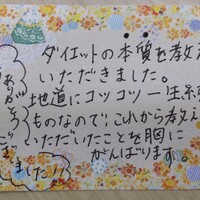 ダイエットの本質を教え
いただきました。
地道にコツコツ一生続
ものなので、これから教え
いただいたことを胸に
がんばります。
ありがとう
ございました!!